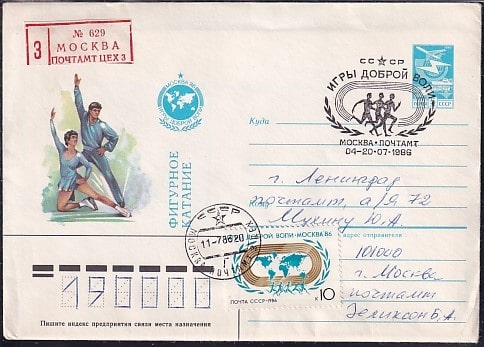 № 629
З МОСКВА
ПОЧТАМТ ЦЕХ 3
МОСКВА 86
ДОБРОЙ
ФИГУРНОЕ
КАТАНИЕ
СССР
ИГРЫ ДОБРОЙ ВОЛИ
МОСКВА·ПОЧТАМТ
04-20·07·1986
ПОЧТА СССР
Куда
г. Ленинград
почтамт, а/я 72
Мухину Ю.А.
СССР
МОСКВА
ПОЧТАМТ
ДОБРОЙ ВОЛИ·МОСКВА 86
ПОЧТА СССР·1986
К 10
адрес отправителя
101000
г. Москва
почтамт
Зеликсон Б.А.
190000
Пишите индекс предприятия связи места назначения